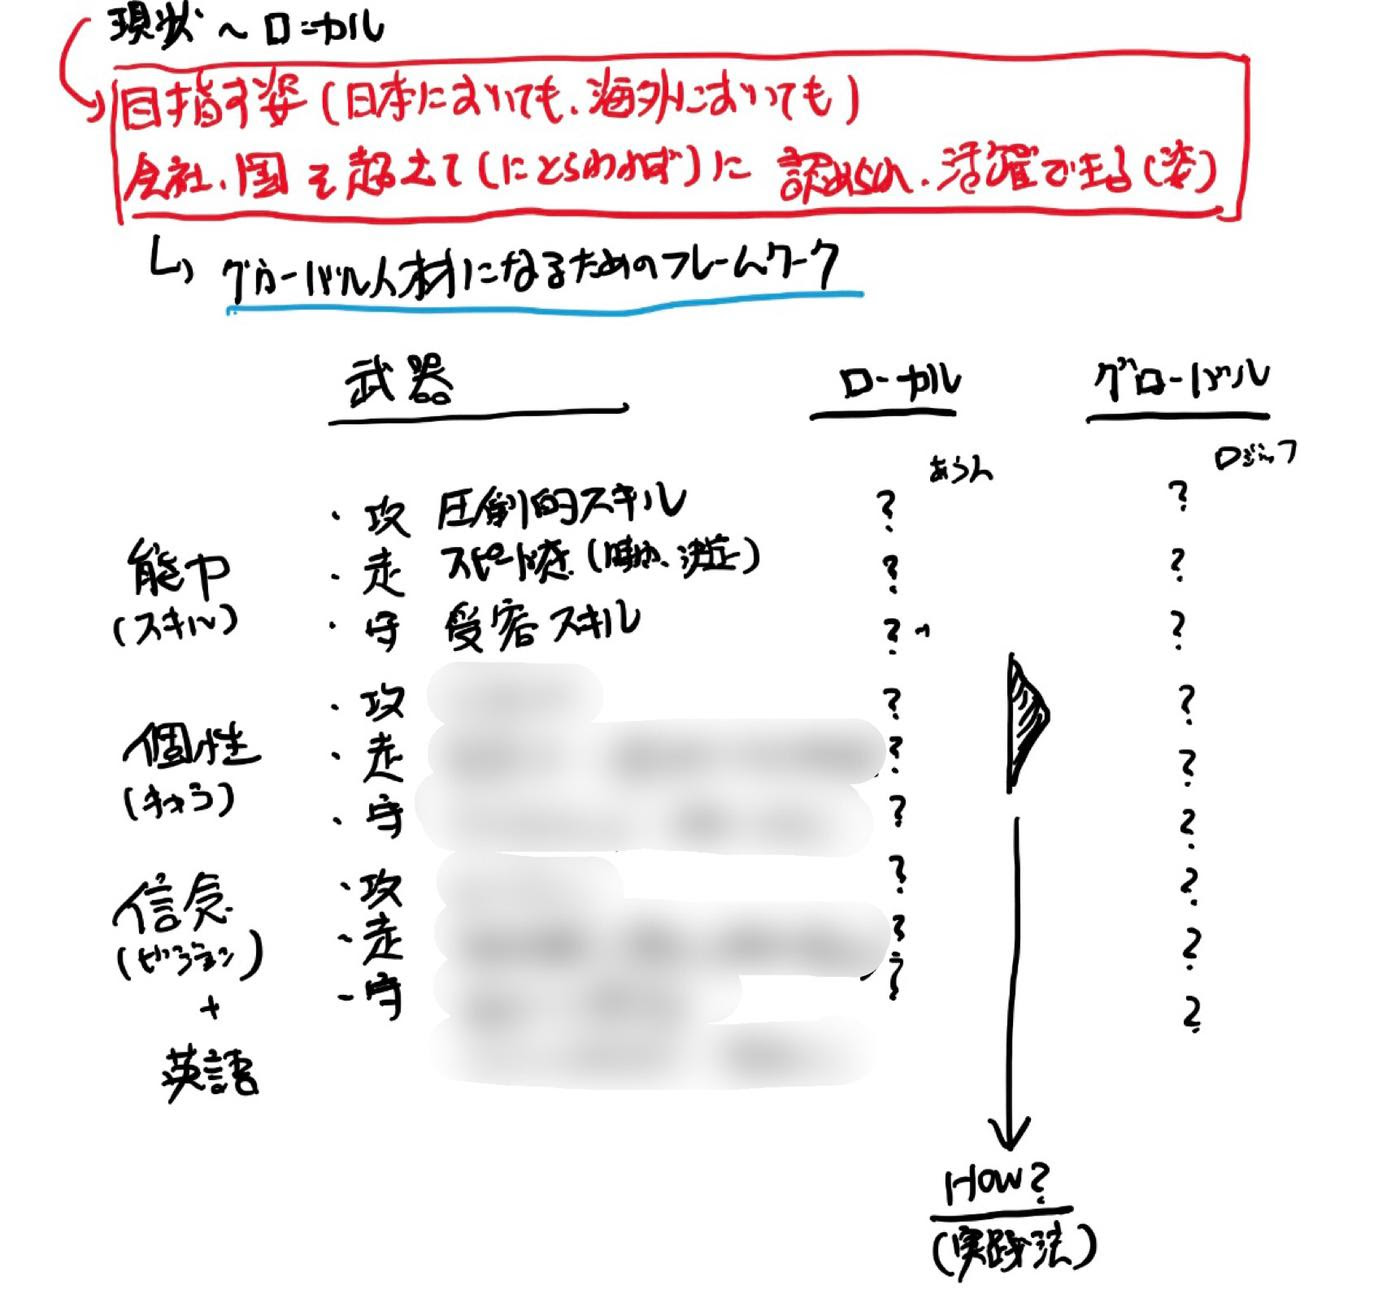 現状 〜 ローカル
目指す姿 (日本においても、海外においても)
会社、国を超えて(にとらわれず)に 認められ、活躍できる(姿)
↳ グローバル人材になるためのフレームワーク
武器 ローカル グローバル
あうん ロジック
・攻 圧倒的スキル ? ?
能力 ・走 スピード感 (判断、決定) ? ?
(スキル) ・守 受容スキル ? ?
・攻 ? ?
個性 ・走 ? ?
(キャラ) ・守 ? ?
信念 ・攻 ? ?
(ビジョン) ・走 ? ?
+ ・守 ? ?
英語
How?
(実践法)